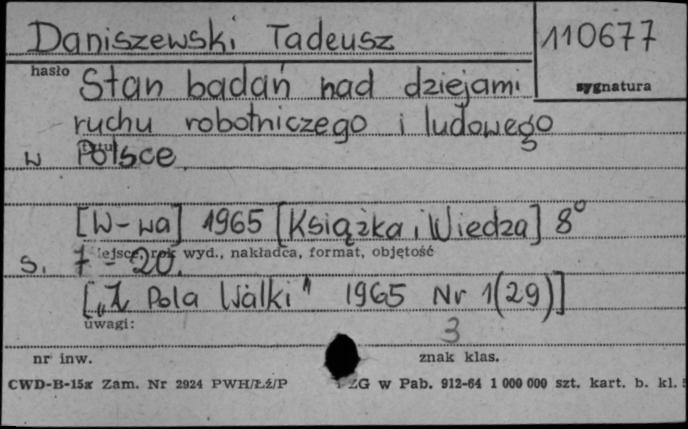 Daniszewski Tadeusz 110677
hasło sygnatura
Stan badań nad dziejami
ruchu robotniczego i ludowego
w Polsce
[W-wa] 1965 [Książka i Wiedza] 8°
miejsce, rok wyd., nakładca, format, objętość
s. 7-20.
[„Z Pola Walki" 1965 Nr 1(29)]
uwagi:
3
nr inw. znak klas.
CWD-B-15x Zam. Nr 2924 PWH/Łź/P ZG w Pab. 912-64 1 000 000 szt. kart. b. kl.